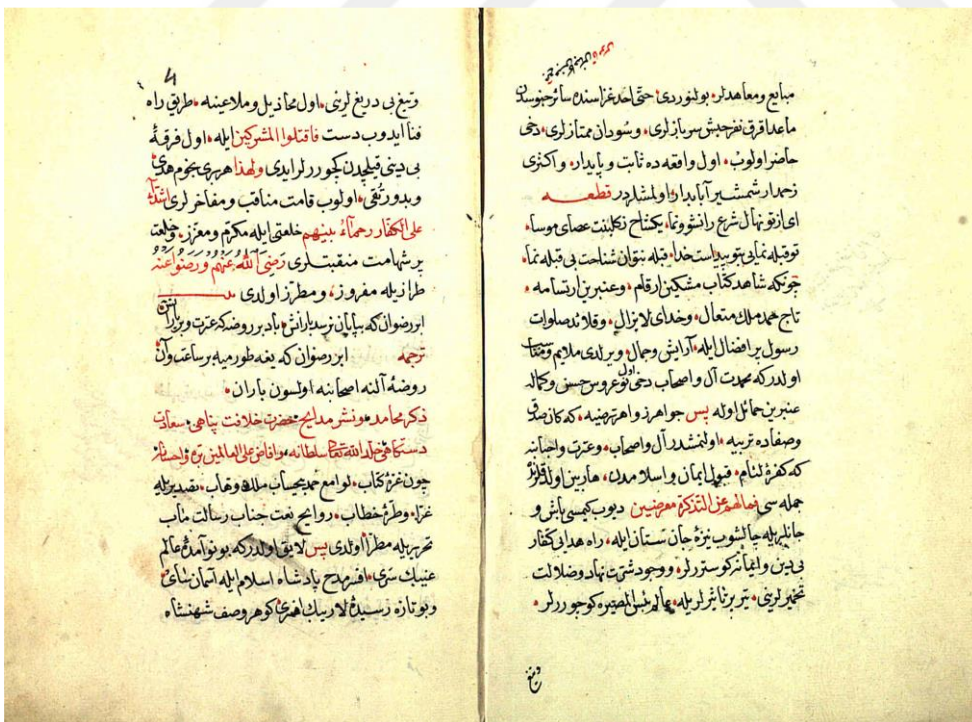 مبایع ومعاهدلر بولنوردی حتی احد غزاسنده سائر حبوشدن
ماعدا قرق نفر حبش سربازلری وسودان ممتازلری دخی
حاضر اولوب اول واقعه ده ثابت و پایدار واکثری
زخمدار شمشیر آبدار اولمشلردر قطعه
ای از تو نهال شرع را نشو ونما یکشاخ ز کلبنت عصای موسا
تو قبله نمایی بتو پیداست خدا قبله نتوان شناخت بی قبله نما
چونکه شاهد کتاب مشکین ارقام وعنبرین ارتسامه
تاج حمد ملك متعال وخدای لایزال وقلائد صلوات
رسول پر افضال ایله آرایش وجمال ویرلدی ملایم
اولدر که محمدت آل واصحاب دخی اول نو عروس حسن وکماله
عنبرین حمائل اوله پس جواهر زواهر ترضیه که کان صدق
وصفاده تربیه اولنمشدر آل واصحاب وعترت واحبابنه
که کفرۀ لئام قبول ایمان واسلامدن هاربین اولدقلرنده
جمله سی فمالهم عن التذکرة معرضین دیوب کیمسی باش و
جانلریله چالشوب نیزۀ جان ستان ایله راه هدایی کفار
بی دین ولئیمانه کوستررلر ووجود شرت نهاد وضلالت
تخمیرلرینی تیر پر تاثیرلریله عالم بئس المصیره کوچوررلر
وتیغ
4
وتیغ بی دریغلرینی اول مخاذیل وملاعینه طریق راه
فنا ایدوب دست فاقتلوا المشرکین ایله اول فرقۀ
بی دینی قیلجدن کچوررلر ایدی ولهذا هر بری نجوم هدی
وبدور تقی اولوب قامت مناقب ومفاخرلری اشداء
علی الکفار رحماء بینهم خلعتی ایله مکرم ومعزز وخلعت
پر شهامت منقبتلری رضی الله عنهم ورضوا عنه
طرازیله مفروز ومطرز اولدی
ابر رضوان که بپایان نرسد بارانش باد بر روضه که عترت ویارانش
ترجمه ابر رضوان که یغه طورمیه بر ساعت وآن
روضۀ آلنه اصحابنه اولسون باران
ذکر محامد ونشر مدایح حضرت خلافت پناهی سعادت
دستکاهی خلد الله تعالی سلطانه وافاض علی العالمین بره واحسانه
چون غرۀ کتاب لوامع حمد بیحساب ملك وهاب تصدیریله
غرا وطرۀ خطاب روایح نعت جناب رسالت مآب
تحریریله مطرا اولدی پس لایق اولدر که بو نو آمدۀ عالم
غیبك سری افسر مدح پادشاه اسلام ایله آسمان سای
وبو تازه رسیدۀ لاریبك کوهر وصف شهنشاه